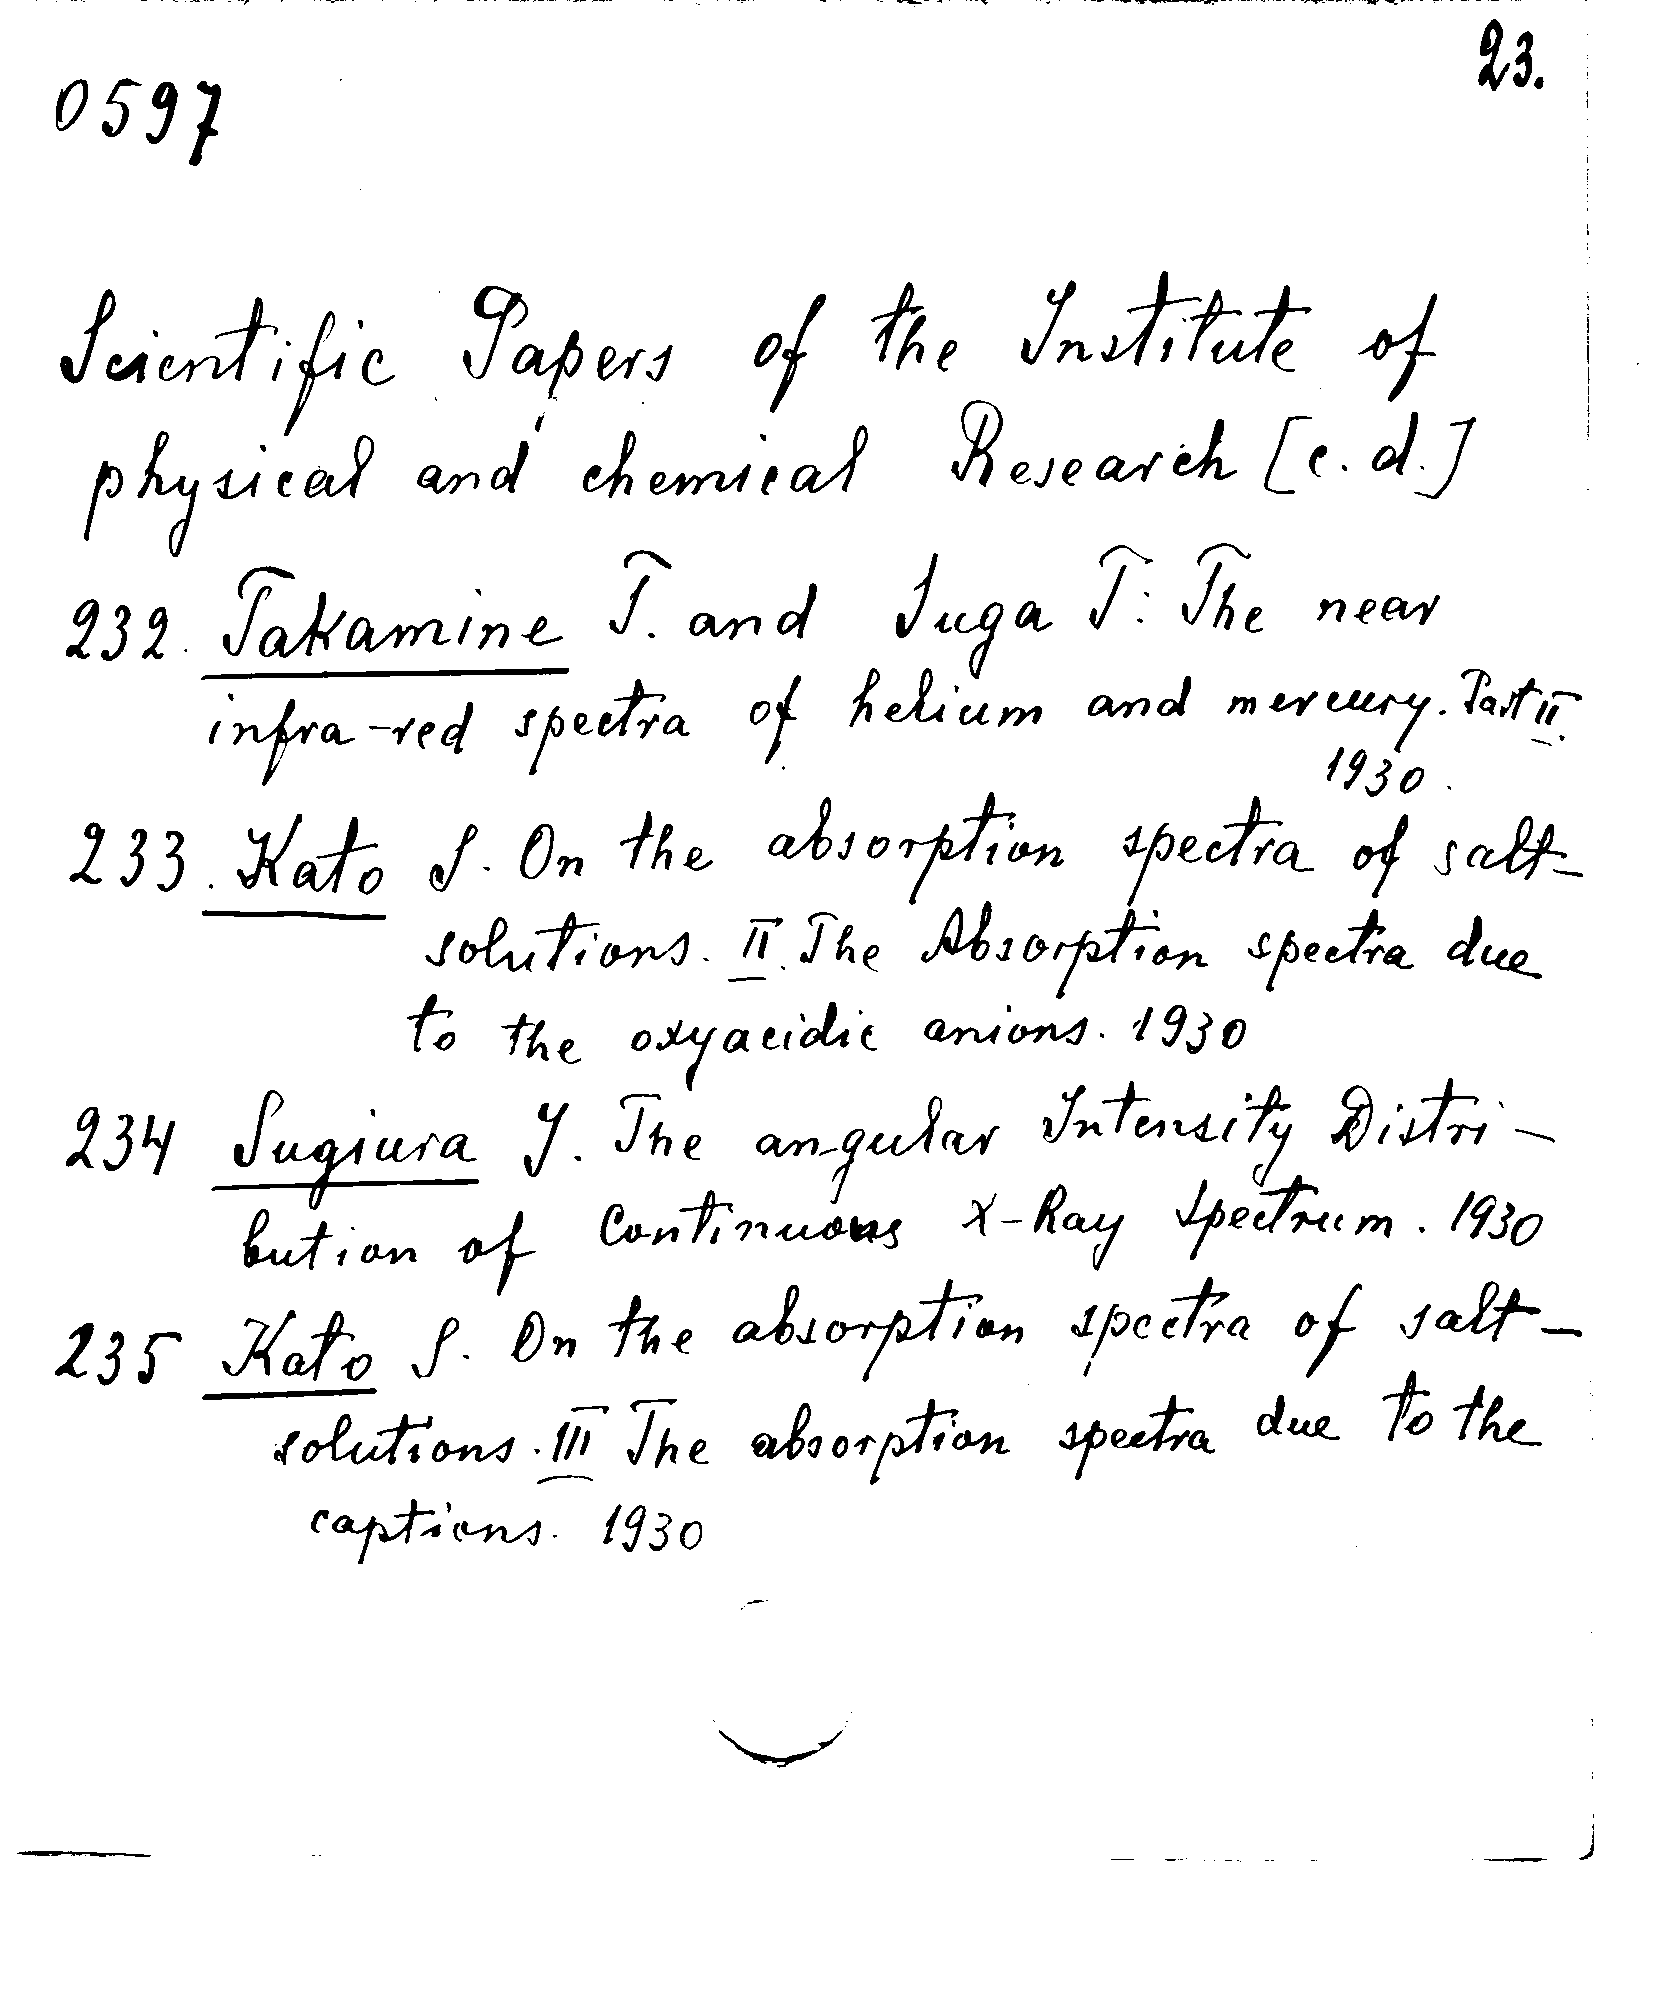 23.
0597
Scientific Papers of the Institute of
physical and chemical Research [c.d.]
232. Takamine T. and Suga T: The near
infra-red spectra of helium and mercury. Part II.
1930.
233. Kato S. On the absorption spectra of salt-
solutions. II. The Absorption spectra due
to the oxyacidic anions. 1930
234 Sugiura Y. The angular Intensity Distri-
bution of Continuous X-Ray Spectrum. 1930
235 Kato S. On the absorption spectra of salt-
solutions. III The absorption spectra due to the
captions. 1930